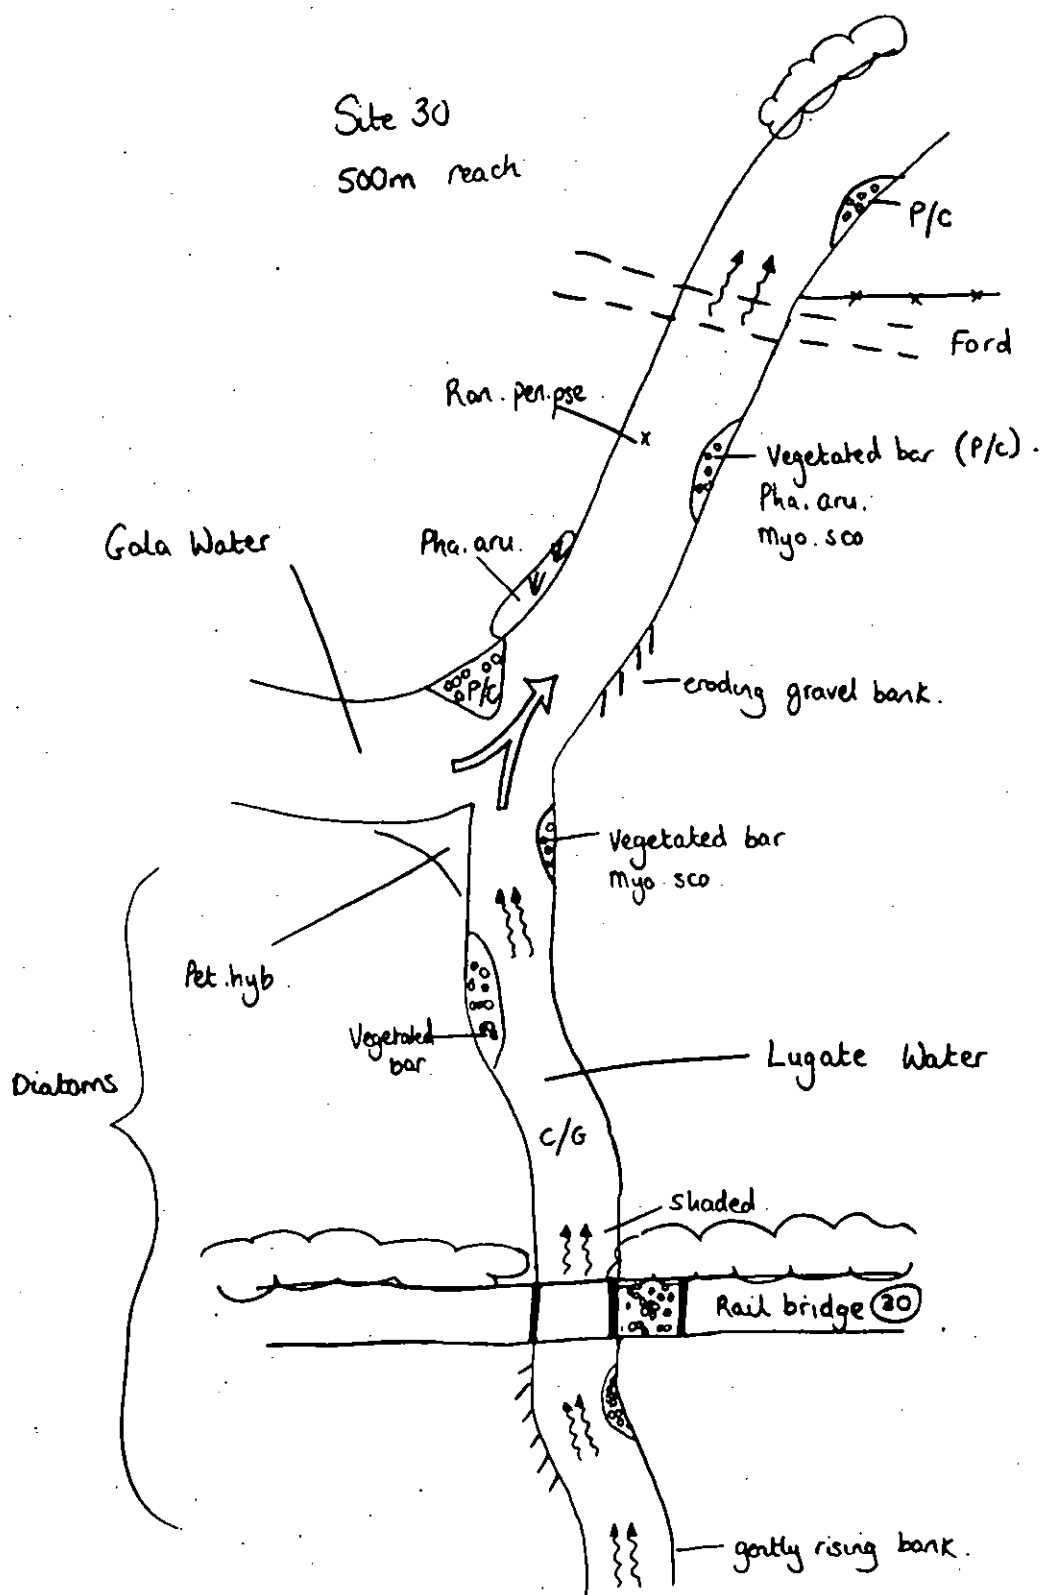 Site 30
500m reach
P/C
Ford
Ran. pen. pse
Vegetated bar (P/C).
Pha. aru.
Myo. sco
Gala Water
Pha. aru.
P/C
eroding gravel bank.
Vegetated bar
Myo. sco
Pet. hyb.
Vegetated
bar.
Lugate Water
Diatoms
C/G
shaded
Rail bridge 30
gently rising bank.